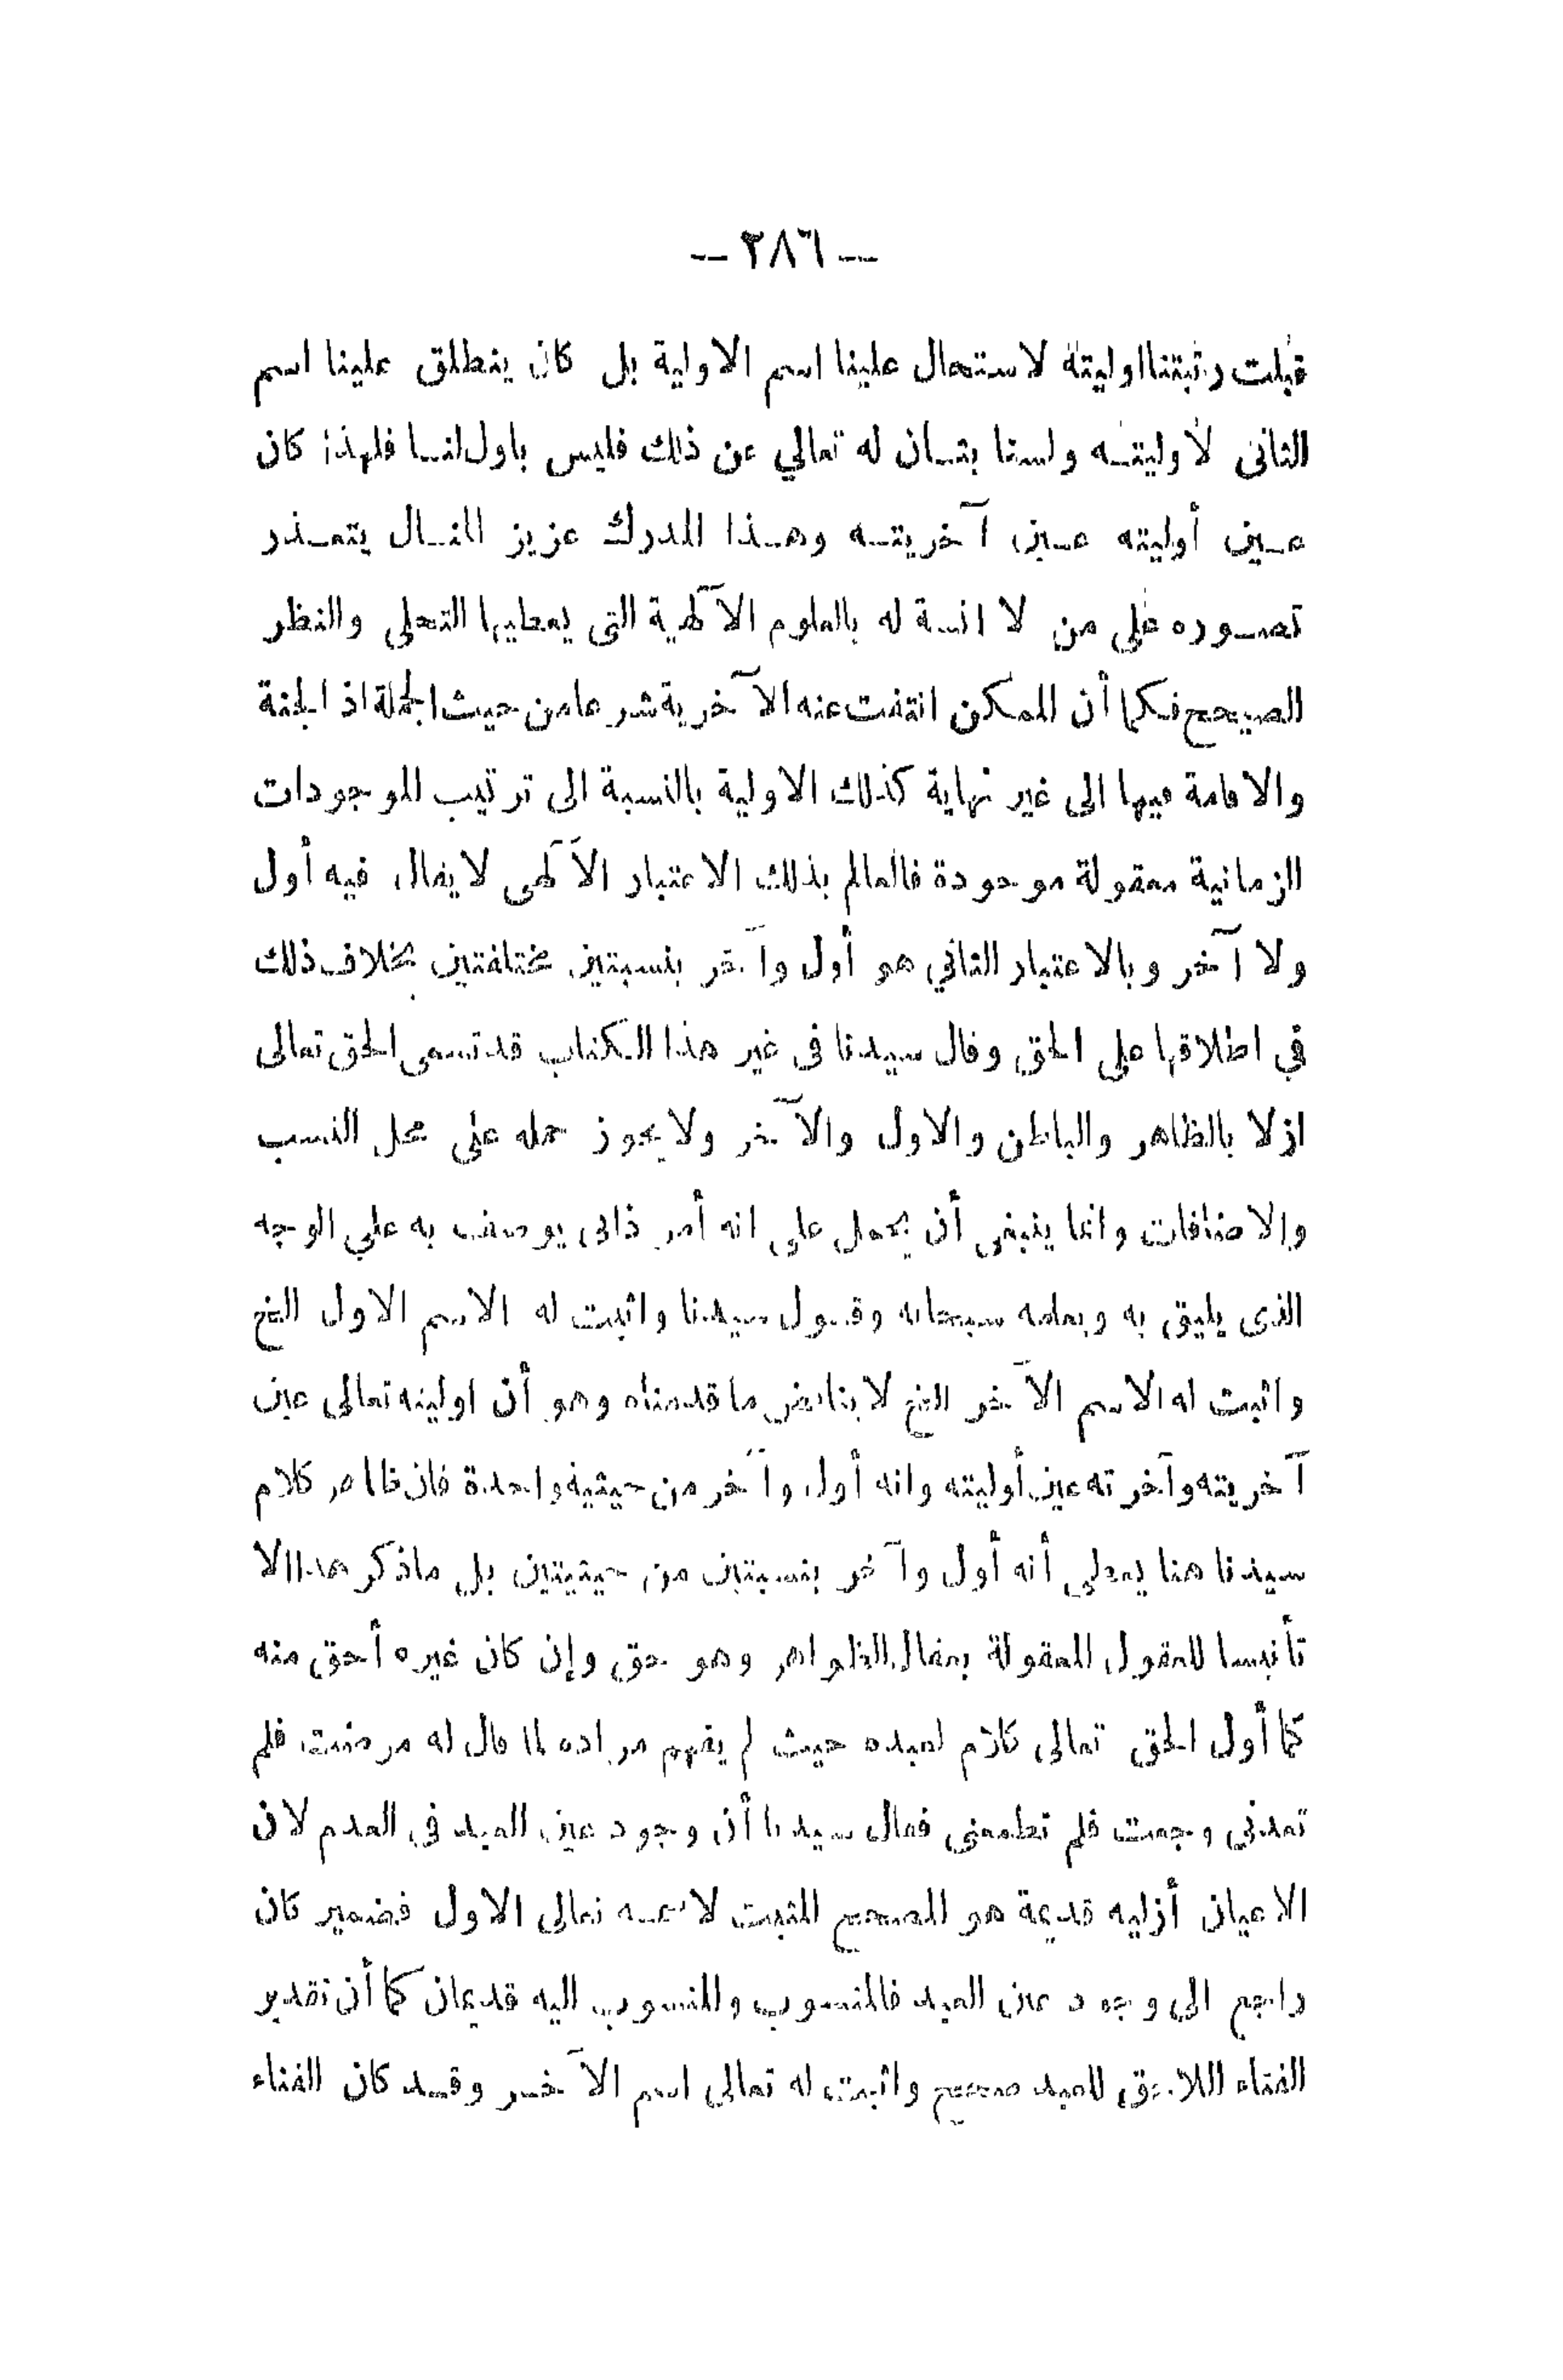 — ٢٨٦ —
قبلت رتبتنا اوليته لاستحال علينا اسم الاولية بل كان ينطلق علينا اسم
الثانى لاوليته ولسنا بثان له تعالي عن ذلك فليس باول لنا فلهذا كان
عين أوليته عين آخريته وهذا المدرك عزيز المنال يتعذر
تصوره على من لا انسة له بالعلوم الآلهية التى يعطيها التجلى والنظر
الصحيح فكما أن الممكن انتفت عنه الآخرية شرعا من حيث الجملة اذ الجنة
والاقامة فيها الى غير نهاية كذلك الاولية بالنسبة الى ترتيب الموجودات
الزمانية معقولة موجودة فالعالم بذلك الاعتبار الآلهى لا يقال فيه أول
ولا آخر وبالاعتبار الثاني هو أول وآخر بنسبتين مختلفتين بخلاف ذلك
في اطلاقها على الحق وقال سيدنا فى غير هذا الكتاب قد تسمى الحق تعالى
ازلا بالظاهر والباطن والاول والآخر ولا يجوز حمله على محل النسب
والاضافات وانما ينبغى أن يحمل على انه أمر ذاتى يوصف به علي الوجه
الذى يليق به ويعلمه سبحانه وقول سيدنا واثبت له الاسم الاول الخ
واثبت له الاسم الآخر الخ لا يناقض ما قدمناه وهو أن اوليته تعالى عين
آخريته وآخرته عين أوليته وانه أول وآخر من حيثية واحدة فان ظاهر كلام
سيدنا هنا يعطى أنه أول وآخر بنسبتين من حيثيتين بل ماذكر هذا الا
تأنيسا للعقول المعقولة بعقال الظواهر وهو حق وإن كان غيره أحق منه
كما أول الحق تعالى كلام لعبده حيث لم يفهم مراده لما قال له مرضت فلم
تعدنى وجعت فلم تطعمنى فقال سيدنا أن وجود عين العبد في العدم لان
الاعيان أزليه قديمة هو المصحح المثبت لاسمه تعالى الاول فضمير كان
راجع الى وجود عين العبد فالمنسوب والمنسوب اليه قديمان كما أن تقدير
الفناء اللاحق للعبد صحح واثبت له تعالى اسم الآخر وقد كان الفناء